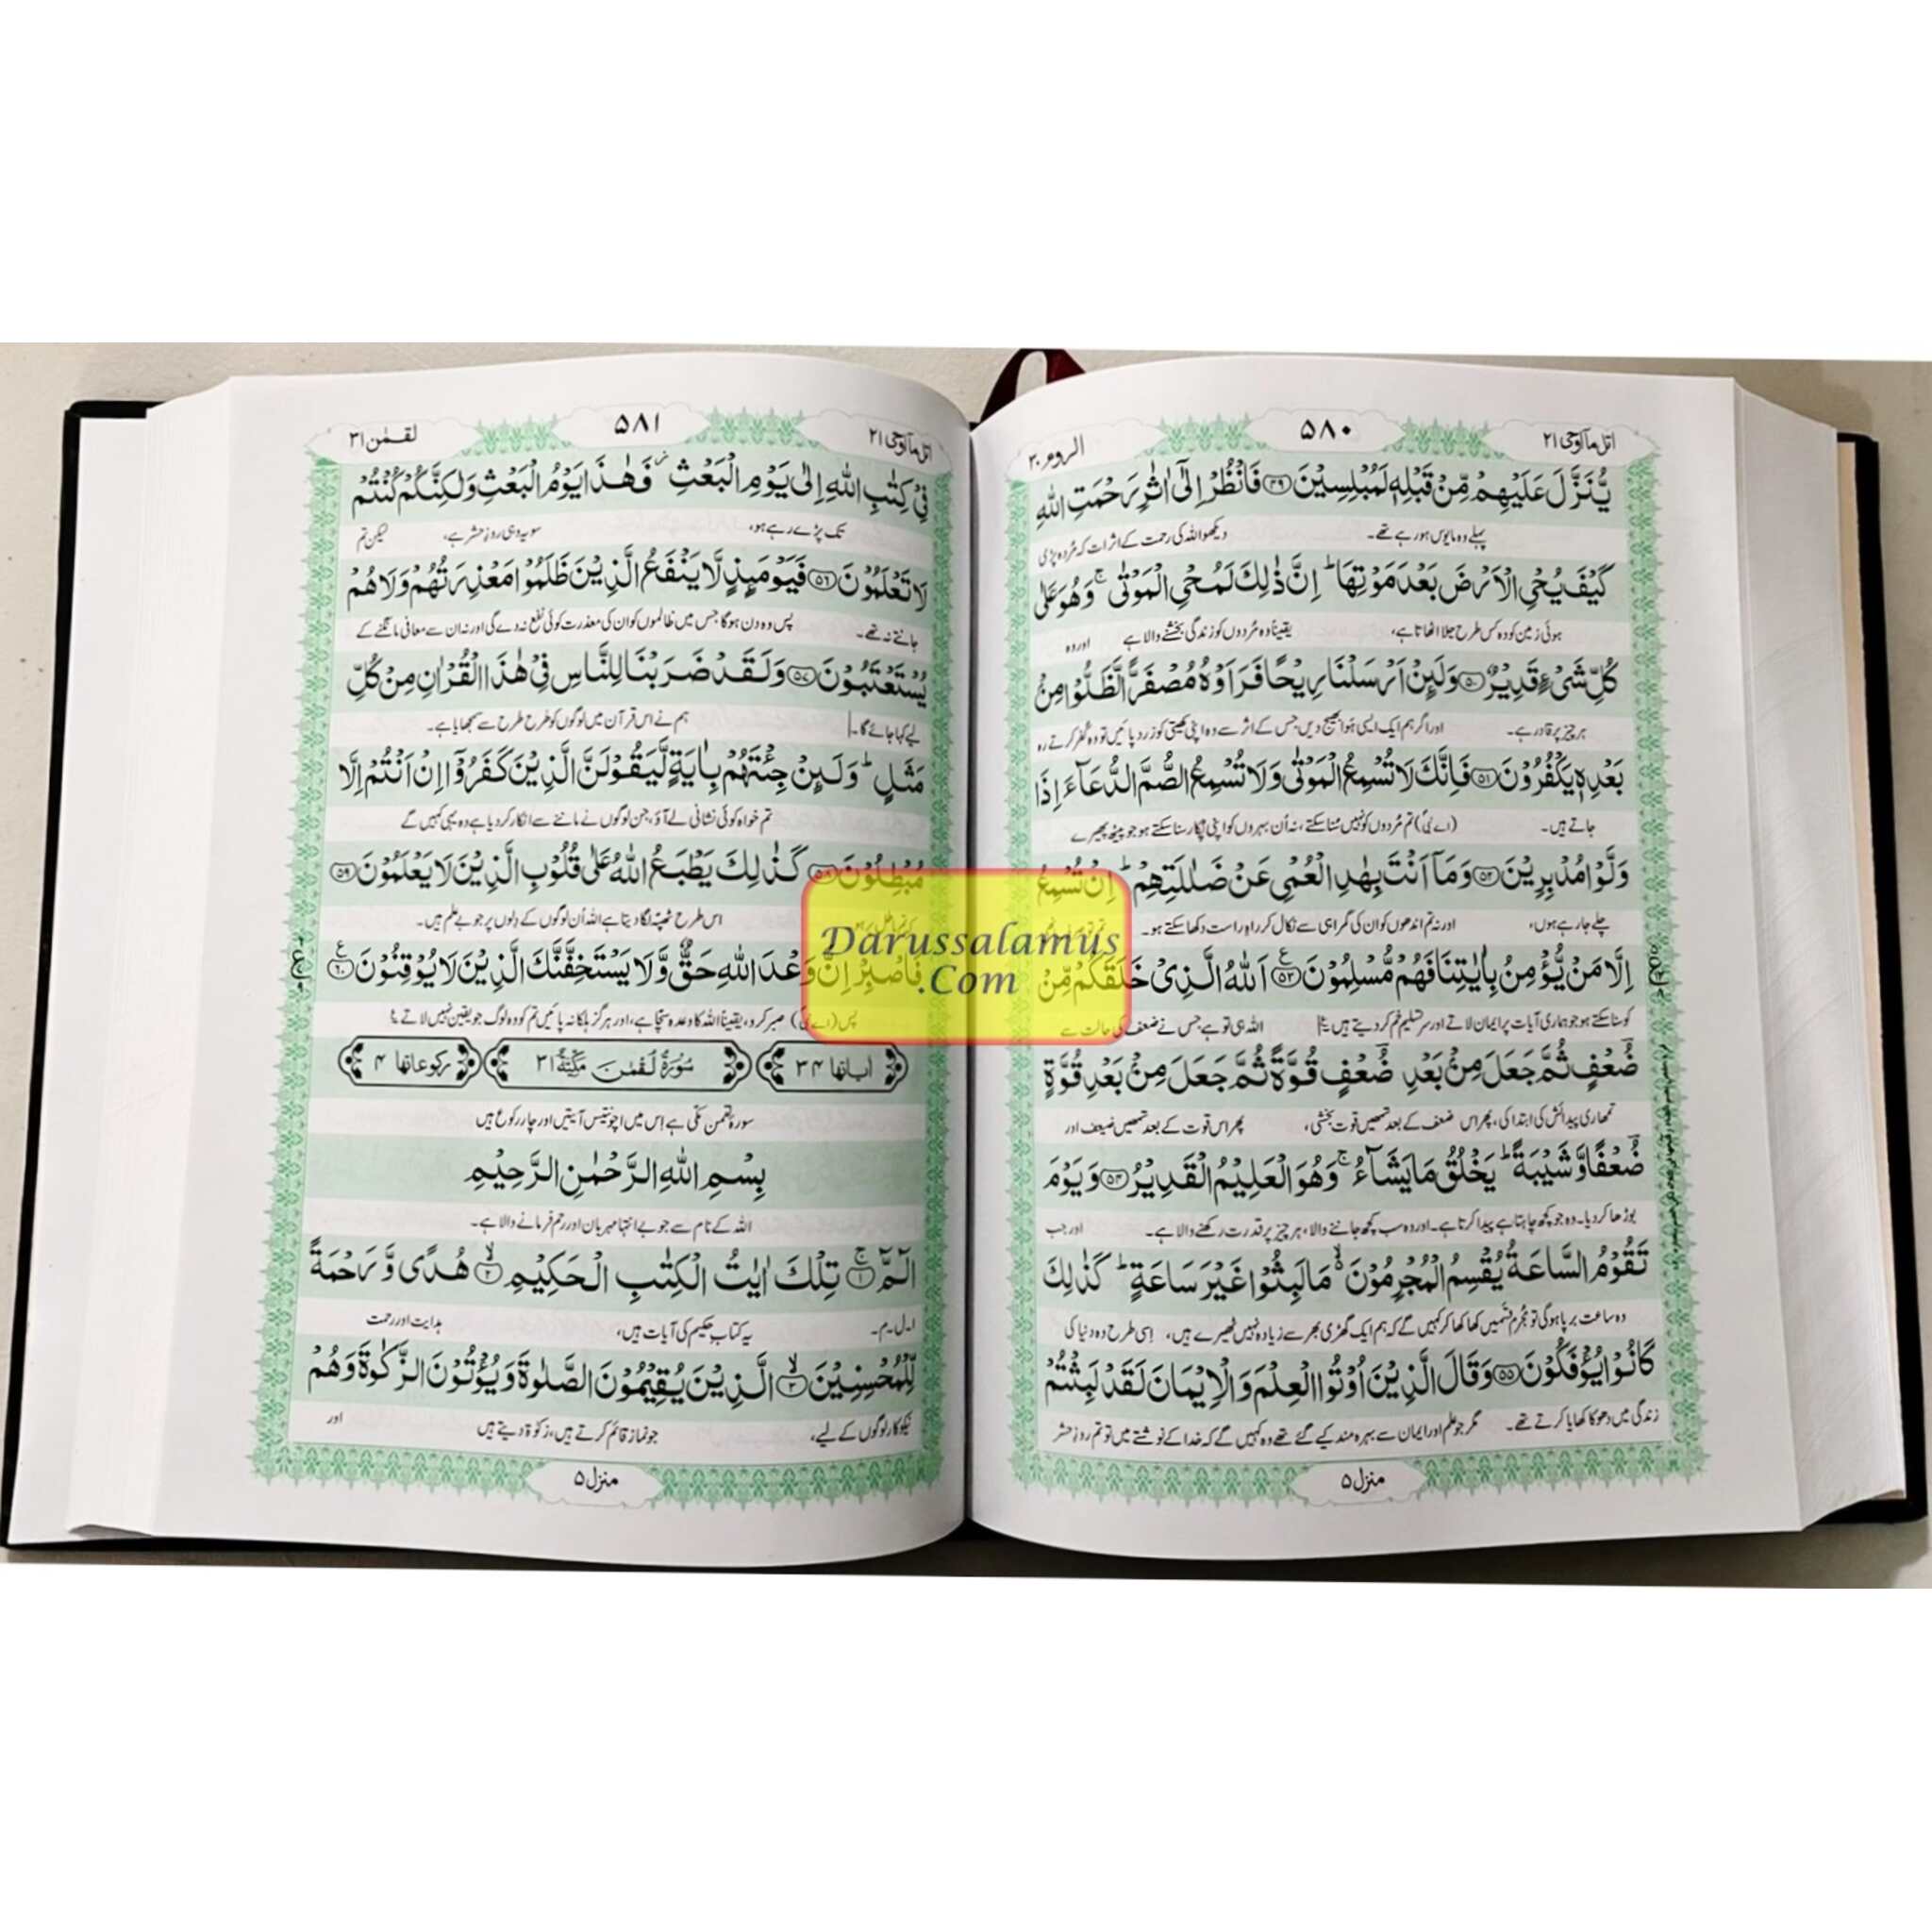 اتل مآ اوحی ۲۱
۵۸۰
الروم ۳۰
يُّنَزَّلَ عَلَيْهِمْ مِّنْ قَبْلِهٖ لَمُبْلِسِيْنَ ۴۹ فَانْظُرْ اِلٰٓى اٰثٰرِ رَحْمَتِ اللّٰهِ
پہلے وہ مایوس ہو رہے تھے۔ دیکھو اللہ کی رحمت کے اثرات کہ مُردہ پڑی
كَيْفَ يُحْيِ الْاَرْضَ بَعْدَ مَوْتِهَا ؕ اِنَّ ذٰلِكَ لَمُحْيِ الْمَوْتٰى ۚ وَهُوَ عَلٰى
ہوئی زمین کو وہ کس طرح جلا اٹھاتا ہے، یقیناً وہ مُردوں کو زندگی بخشنے والا ہے اور وہ
كُلِّ شَيْءٍ قَدِيْرٌ ۵۰ وَلَئِنْ اَرْسَلْنَا رِيْحًا فَرَاَوْهُ مُصْفَرًّا لَّظَلُّوْا مِنْۢ
ہر چیز پر قادر ہے۔ اور اگر ہم ایک ایسی ہَوا بھیج دیں جس کے اثر سے وہ اپنی کھیتی کو زرد پائیں تو وہ کفر کرتے رہ
بَعْدِهٖ يَكْفُرُوْنَ ۵۱ فَاِنَّكَ لَا تُسْمِعُ الْمَوْتٰى وَلَا تُسْمِعُ الصُّمَّ الدُّعَآءَ اِذَا
جاتے ہیں۔ (اے نبیؐ) تم مُردوں کو نہیں سُنا سکتے، نہ اُن بہروں کو اپنی پکار سنا سکتے ہو جو پیٹھ پھیرے
وَلَّوْا مُدْبِرِيْنَ ۵۲ وَمَآ اَنْتَ بِهٰدِ الْعُمْيِ عَنْ ضَلٰلَتِهِمْ ؕ اِنْ تُسْمِعُ
چلے جا رہے ہوں، اور نہ تم اندھوں کو ان کی گمراہی سے نکال کر راہِ راست دکھا سکتے ہو۔
اِلَّا مَنْ يُّؤْمِنُ بِاٰيٰتِنَا فَهُمْ مُّسْلِمُوْنَ ۵۳ اَللّٰهُ الَّذِيْ خَلَقَكُمْ مِّنْ
کو سنا سکتے ہو جو ہماری آیات پر ایمان لاتے اور سرِ تسلیم خم کر دیتے ہیں اللہ ہی تو ہے جس نے ضعف کی حالت سے
ضُعْفٍ ثُمَّ جَعَلَ مِنْۢ بَعْدِ ضُعْفٍ قُوَّةً ثُمَّ جَعَلَ مِنْۢ بَعْدِ قُوَّةٍ
تمھاری پیدائش کی ابتدا کی، پھر اس ضعف کے بعد تمھیں قوت بخشی، پھر اس قوت کے بعد تمھیں ضعیف اور
ضُعْفًا وَّشَيْبَةً ؕ يَخْلُقُ مَا يَشَآءُ ۚ وَهُوَ الْعَلِيْمُ الْقَدِيْرُ ۵۴ وَيَوْمَ
بوڑھا کر دیا۔ وہ جو کچھ چاہتا ہے پیدا کرتا ہے۔ اور وہ سب کچھ جاننے والا، ہر چیز پر قدرت رکھنے والا ہے۔ اور جب
تَقُوْمُ السَّاعَةُ يُقْسِمُ الْمُجْرِمُوْنَ ۙ مَا لَبِثُوْا غَيْرَ سَاعَةٍ ؕ كَذٰلِكَ
وہ ساعت برپا ہوگی تو مجرم قسمیں کھا کھا کر کہیں گے کہ ہم ایک گھڑی بھر سے زیادہ نہیں ٹھیرے ہیں، اِسی طرح وہ دنیا کی
كَانُوْا يُؤْفَكُوْنَ ۵۵ وَقَالَ الَّذِيْنَ اُوْتُوا الْعِلْمَ وَالْاِيْمَانَ لَقَدْ لَبِثْتُمْ
زندگی میں دھوکا کھایا کرتے تھے۔ مگر جو علم اور ایمان سے بہرہ مند کیے گئے تھے وہ کہیں گے کہ خدا کے نوشتے میں تو تم روزِ حشر
منزل ۵
اتل مآ اوحی ۲۱
۵۸۱
لقمٰن ۳۱
فِيْ كِتٰبِ اللّٰهِ اِلٰى يَوْمِ الْبَعْثِ ۫ فَهٰذَا يَوْمُ الْبَعْثِ وَلٰكِنَّكُمْ كُنْتُمْ
تک پڑے رہے ہو، سو یہ وہی روزِ حشر ہے، لیکن تم
لَا تَعْلَمُوْنَ ۵۶ فَيَوْمَئِذٍ لَّا يَنْفَعُ الَّذِيْنَ ظَلَمُوْا مَعْذِرَتُهُمْ وَلَا هُمْ
جانتے نہ تھے۔ پس وہ دن ہوگا جس میں ظالموں کو ان کی معذرت کوئی نفع نہ دے گی اور نہ ان سے معافی مانگنے کے
يُسْتَعْتَبُوْنَ ۵۷ وَلَقَدْ ضَرَبْنَا لِلنَّاسِ فِيْ هٰذَا الْقُرْاٰنِ مِنْ كُلِّ
لیے کہا جائے گا۔ ہم نے اس قرآن میں لوگوں کو طرح طرح سے سمجھایا ہے۔
مَثَلٍ ؕ وَلَئِنْ جِئْتَهُمْ بِاٰيَةٍ لَّيَقُوْلَنَّ الَّذِيْنَ كَفَرُوْٓا اِنْ اَنْتُمْ اِلَّا
تم خواہ کوئی نشانی لے آؤ، جن لوگوں نے ماننے سے انکار کر دیا ہے وہ یہی کہیں گے
مُبْطِلُوْنَ ۵۸ كَذٰلِكَ يَطْبَعُ اللّٰهُ عَلٰى قُلُوْبِ الَّذِيْنَ لَا يَعْلَمُوْنَ ۵۹
اس طرح ٹھپّہ لگا دیتا ہے اللہ اُن لوگوں کے دِلوں پر جو بے علم ہیں۔
فَاصْبِرْ اِنَّ وَعْدَ اللّٰهِ حَقٌّ وَّلَا يَسْتَخِفَّنَّكَ الَّذِيْنَ لَا يُوْقِنُوْنَ ۶۰
پس (اے نبیؐ) صبر کرو، یقیناً اللہ کا وعدہ سچّا ہے، اور ہرگز ہلکا نہ پائیں تم کو وہ لوگ جو یقین نہیں لاتے
اٰیاتها ۳۴
سُوْرَةُ لُقْمٰنَ مَكِّيَّةٌ ۳۱
رکوعاتها ۴
سورۂ لقمٰن مکّی ہے اِس میں چونتیس آیتیں اور چار رکوع ہیں
بِسْمِ اللّٰهِ الرَّحْمٰنِ الرَّحِيْمِ
اللہ کے نام سے جو بے انتہا مہربان اور رحم فرمانے والا ہے۔
الٓمّٓ ۱ تِلْكَ اٰيٰتُ الْكِتٰبِ الْحَكِيْمِ ۲ هُدًى وَّرَحْمَةً
ا۔ل۔م۔ یہ کتابِ حکیم کی آیات ہیں، ہدایت اور رحمت
لِّلْمُحْسِنِيْنَ ۳ الَّذِيْنَ يُقِيْمُوْنَ الصَّلٰوةَ وَيُؤْتُوْنَ الزَّكٰوةَ وَهُمْ
نیکوکار لوگوں کے لیے، جو نماز قائم کرتے ہیں، زکوٰۃ دیتے ہیں اور
منزل ۵
Darussalamus
.Com